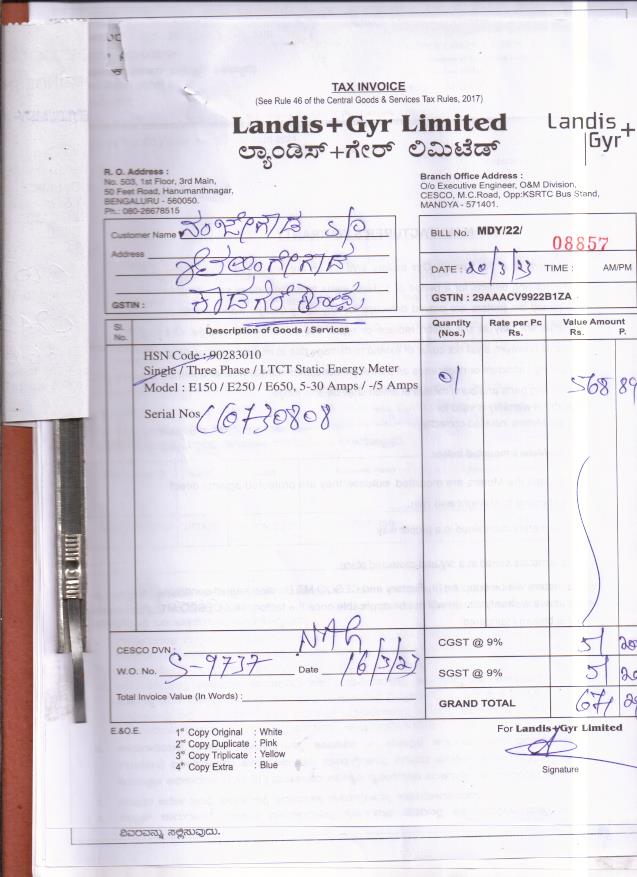 TAX INVOICE
(See Rule 46 of the Central Goods & Services Tax Rules, 2017)
Landis+Gyr Limited
Landis Gyr+
ಲ್ಯಾಂಡಿಸ್+ಗೇರ್ ಲಿಮಿಟೆಡ್
R. O. Address :
No. 503, 1st Floor, 3rd Main,
50 Feet Road, Hanumanthnagar,
BENGALURU - 560050.
Ph.: 080-26678515
Branch Office Address :
O/o Executive Engineer, O&M Division,
CESCO, M.C.Road, Opp:KSRTC Bus Stand,
MANDYA - 571401.
Customer Name ನಂಜೇಗೌಡ S/o
Address
GSTIN :
BILL No. MDY/22/ 08857
DATE : 20/3/23 TIME : AM/PM
GSTIN : 29AAACV9922B1ZA
Sl. No. Description of Goods / Services Quantity (Nos.) Rate per Pc Rs. Value Amount Rs. P.
HSN Code : 90283010
Single / Three Phase / LTCT Static Energy Meter
Model : E150 / E250 / E650, 5-30 Amps / -/5 Amps 01 568 89
Serial Nos
CESCO DVN :
W.O. No. S-9737 Date 16/3/23
Total Invoice Value (In Words) :
CGST @ 9% 51 20
SGST @ 9% 51 20
GRAND TOTAL 671 29
E.&O.E.
1st Copy Original : White
2nd Copy Duplicate : Pink
3rd Copy Triplicate : Yellow
4th Copy Extra : Blue
For Landis+Gyr Limited
Signature
ವಿವರವನ್ನು ಸಲ್ಲಿಸುವುದು.